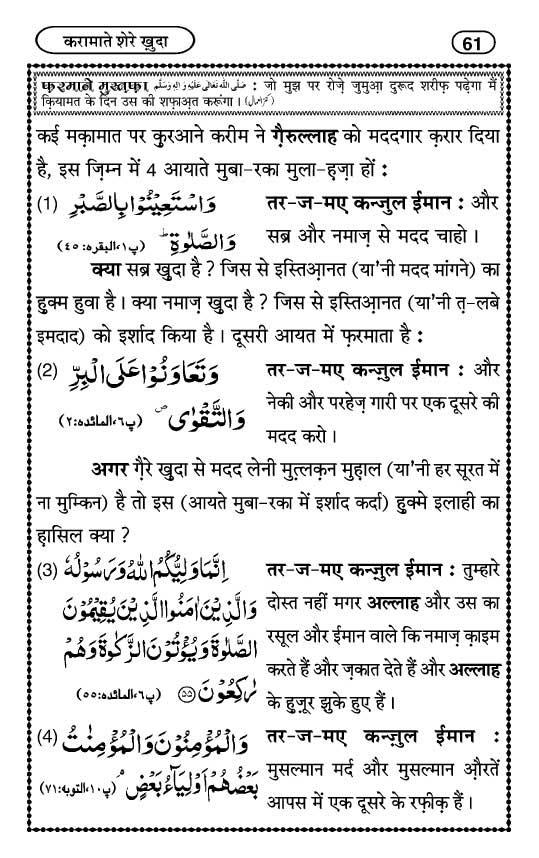 करामाते शेरे ख़ुदा
61
फ़रमाने मुस्तफ़ा صَلَّى اللهُ تَعَالٰى عَلَيْهِ وَاٰلِهٖ وَسَلَّم : जो मुझ पर रोज़े जुमुआ दुरूद शरीफ़ पढ़ेगा मैं
क़ियामत के दिन उस की शफ़ाअत करूंगा। (کنز العمال)
कई मक़ामात पर कुरआने करीम ने ग़ैरुल्लाह को मददगार क़रार दिया
है, इस ज़िम्न में 4 आयाते मुबा-रका मुला-हज़ा हों :
(1) وَاسْتَعِيْنُوْا بِالصَّبْرِ
وَالصَّلٰوةِ ؕ (پ۱،البقرہ:۴۵)
तर-ज-मए कन्ज़ुल ईमान : और
सब्र और नमाज़ से मदद चाहो।
क्या सब्र ख़ुदा है ? जिस से इस्तिआ़नत (या'नी मदद मांगने) का
हुक्म हुवा है। क्या नमाज़ ख़ुदा है ? जिस से इस्तिआ़नत (या'नी त़-लबे
इमदाद) को इर्शाद किया है। दूसरी आयत में फ़रमाता है :
(2) وَتَعَاوَنُوْا عَلَى الْبِرِّ
وَالتَّقْوٰى ۪ (پ۶،المائدہ:۲)
तर-ज-मए कन्ज़ुल ईमान : और
नेकी और परहेज़ गारी पर एक दूसरे की
मदद करो।
अगर ग़ैरे ख़ुदा से मदद लेनी मुत़्लक़न मुह़ाल (या'नी हर सूरत में
ना मुम्किन) है तो इस (आयते मुबा-रका में इर्शाद कर्दा) हुक्मे इलाही का
ह़ासिल क्या ?
(3) اِنَّمَا وَلِيُّكُمُ اللّٰهُ وَرَسُوْلُهٗ
وَالَّذِيْنَ اٰمَنُوا الَّذِيْنَ يُقِيْمُوْنَ
الصَّلٰوةَ وَيُؤْتُوْنَ الزَّكٰوةَ وَهُمْ
رٰكِعُوْنَ ﴿۵۵﴾ (پ۶،المائدہ:۵۵)
तर-ज-मए कन्ज़ुल ईमान : तुम्हारे
दोस्त नहीं मगर अल्लाह और उस का
रसूल और ईमान वाले कि नमाज़ क़ाइम
करते हैं और ज़कात देते हैं और अल्लाह
के हुज़ूर झुके हुए हैं।
(4) وَالْمُؤْمِنُوْنَ وَالْمُؤْمِنٰتُ
بَعْضُهُمْ اَوْلِيَآءُ بَعْضٍ ۘ (پ۱۰،التوبہ:۷۱)
तर-ज-मए कन्ज़ुल ईमान :
मुसल्मान मर्द और मुसल्मान औ़रतें
आपस में एक दूसरे के रफ़ीक़ हैं।